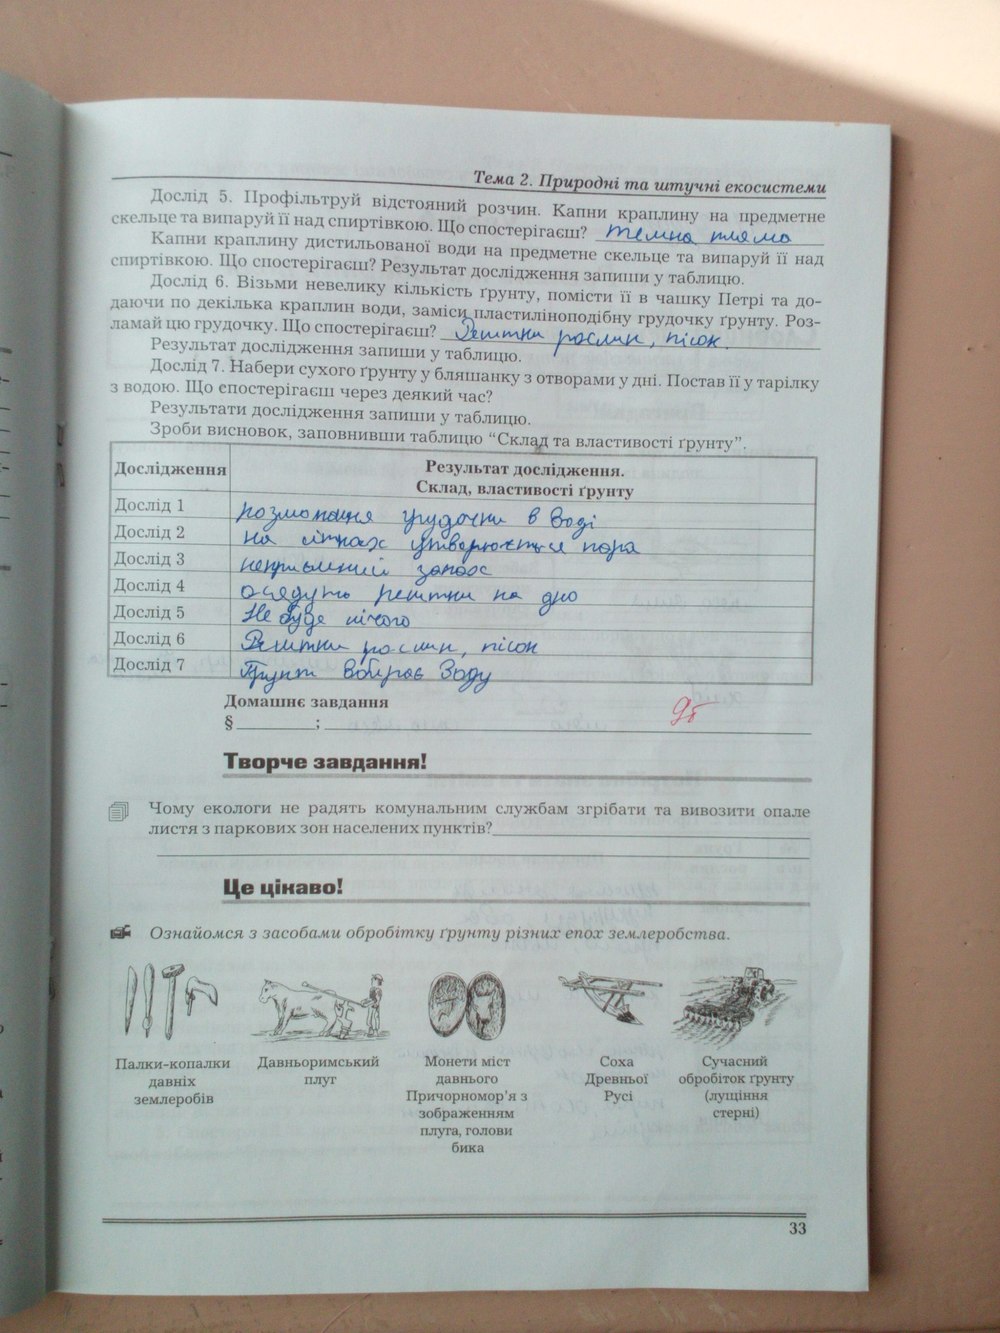 Тема 2. Природні та штучні екосистеми
Дослід 5. Профільтруй відстояний розчин. Капни краплину на предметне
скельце та випаруй її над спиртівкою. Що спостерігаєш? темна пляма
Капни краплину дистильованої води на предметне скельце та випаруй її над
спиртівкою. Що спостерігаєш? Результат дослідження запиши у таблицю.
Дослід 6. Візьми невелику кількість ґрунту, помісти її в чашку Петрі та до-
даючи по декілька краплин води, заміси пластиліноподібну грудочку ґрунту. Роз-
ламай цю грудочку. Що спостерігаєш? Рештки рослин, пісок.
Результат дослідження запиши у таблицю.
Дослід 7. Набери сухого ґрунту у бляшанку з отворами у дні. Постав її у тарілку
з водою. Що спостерігаєш через деякий час?
Результати дослідження запиши у таблицю.
Зроби висновок, заповнивши таблицю “Склад та властивості ґрунту”.
Дослідження Результат дослідження.
Склад, властивості ґрунту
Дослід 1 грудочки в воді
Дослід 2 на утворюється пара
Дослід 3 неприємний запах
Дослід 4 осядуть рештки на дно
Дослід 5 Не буде нічого
Дослід 6 Рештки рослин, пісок
Дослід 7 Ґрунт вбирає воду
Домашнє завдання
§ ;
9б
Творче завдання!
Чому екологи не радять комунальним службам згрібати та вивозити опале
листя з паркових зон населених пунктів?
Це цікаво!
Ознайомся з засобами обробітку ґрунту різних епох землеробства.
Палки-копалки
давніх
землеробів
Давньоримський
плуг
Монети міст
давнього
Причорномор'я з
зображенням
плуга, голови
бика
Соха
Древньої
Русі
Сучасний
обробіток ґрунту
(лущіння
стерні)
33